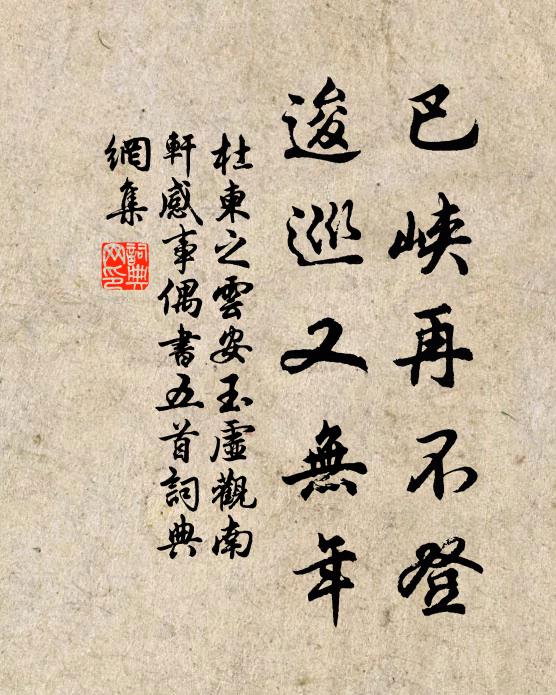 巴峽再不登
逡巡又無年
杜東之雲安玉虛觀南
軒感事偶書五首詞典
網集
詞典
网印